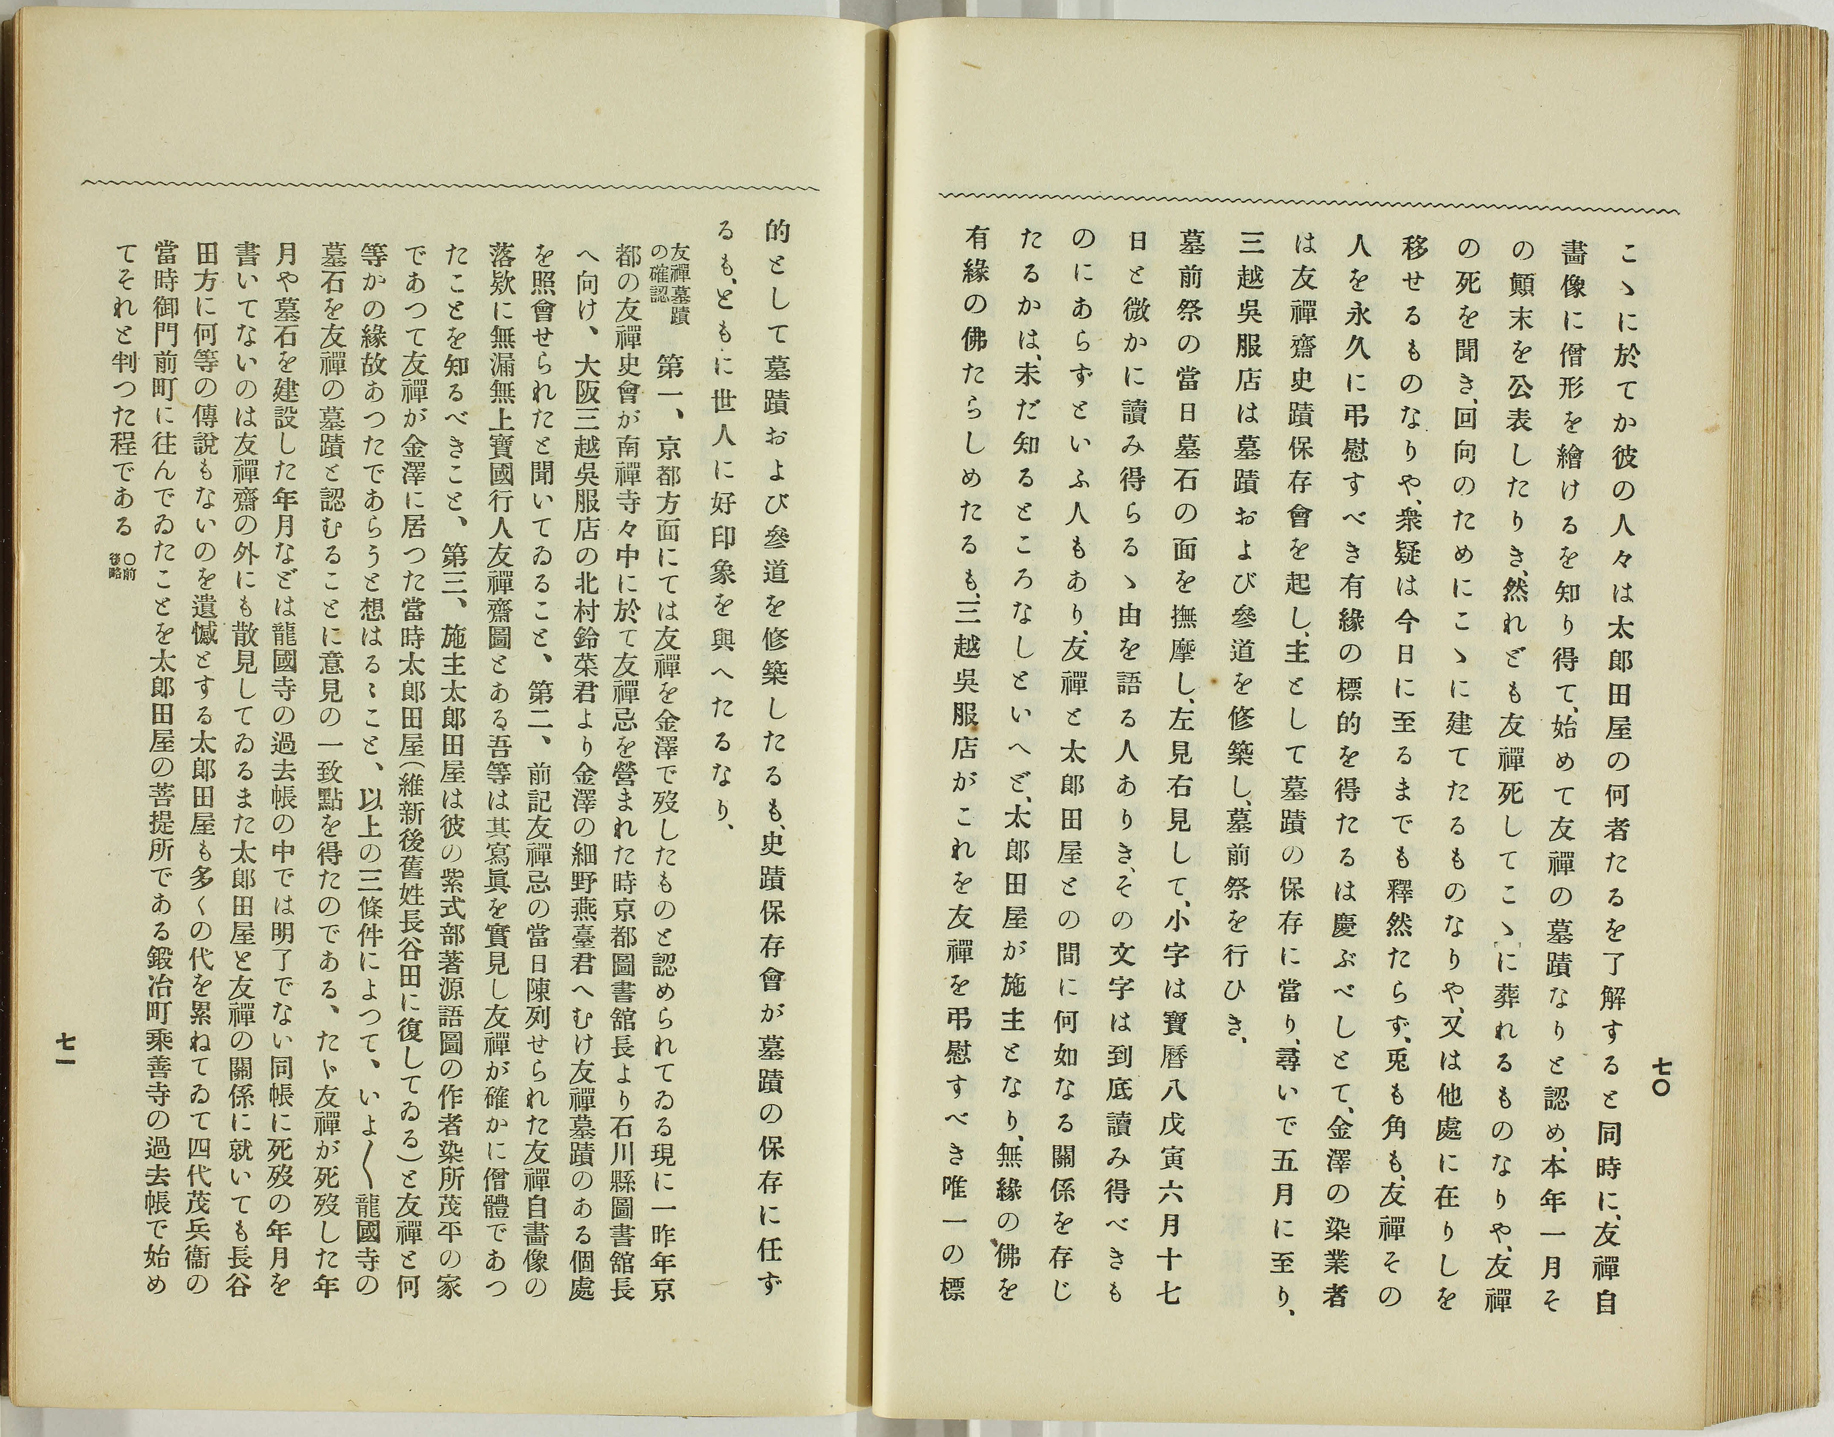 こゝに於てか彼の人々は太郎田屋の何者たるを了解すると同時に、友禪自
畵像に僧形を繪けるを知り得て、始めて友禪の墓蹟なりと認め、本年一月そ
の顚末を公表したりき、然れども友禪死してこゝに葬れるものなりや、友禪
の死を聞き、回向のためにこゝに建てたるものなりや、又は他處に在りしを
移せるものなりや、衆疑は今日に至るまでも釋然たらず、兎も角も、友禪その
人を永久に弔慰すべき有緣の標的を得たるは慶ぶべしとて、金澤の染業者
は友禪齋史蹟保存會を起し、主として墓蹟の保存に當り、尋いで五月に至り、
三越吳服店は墓蹟および參道を修築し、墓前祭を行ひき、
墓前祭の當日墓石の面を撫摩し、左見右見して、小字は寶曆八戊寅六月十七
日と微かに讀み得らるゝ由を語る人ありき、その文字は到底讀み得べきも
のにあらずといふ人もあり、友禪と太郎田屋との間に何如なる關係を存じ
たるかは、未だ知るところなしといへど、太郎田屋が施主となり、無緣の佛を
有緣の佛たらしめたるも、三越吳服店がこれを友禪を弔慰すべき唯一の標
七〇
的として墓蹟および參道を修築したるも、史蹟保存會が墓蹟の保存に任ず
るも、ともに世人に好印象を與へたるなり、
友禪墓蹟
の確認
第一、京都方面にては友禪を金澤で歿したものと認められてゐる現に一昨年京
都の友禪史會が南禪寺々中に於て友禪忌を營まれた時京都圖書舘長より石川縣圖書舘長
へ向け、大阪三越吳服店の北村鈴菜君より金澤の細野燕臺君へむけ友禪墓蹟のある個處
を照會せられたと聞いてゐること、第二、前記友禪忌の當日陳列せられた友禪自畵像の
落欵に無漏無上寶國行人友禪齋圖とある吾等は其寫眞を實見し友禪が確かに僧體であつ
たことを知るべきこと、第三、施主太郎田屋は彼の紫式部著源語圖の作者染所茂平の家
であつて友禪が金澤に居つた當時太郎田屋(維新後舊姓長谷田に復してゐる)と友禪と何
等かの緣故あつたであらうと想はるゝこと、以上の三條件によつて、いよ〱龍國寺の
墓石を友禪の墓蹟と認むることに意見の一致點を得たのである、たゞ友禪が死歿した年
月や墓石を建設した年月などは龍國寺の過去帳の中では明了でない同帳に死歿の年月を
書いてないのは友禪齋の外にも散見してゐるまた太郎田屋と友禪の關係に就いても長谷
田方に何等の傳說もないのを遺憾とする太郎田屋も多くの代を累ねてゐて四代茂兵衞の
當時御門前町に往んでゐたことを太郎田屋の菩提所である鍛冶町乘善寺の過去帳で始め
てそれと判つた程である
〇前
後略
七一